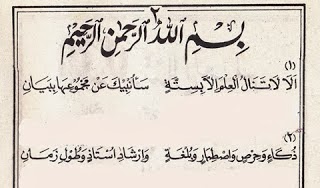 ٢
بِسْمِ اللهِ الرَّحْمٰنِ الرَّحِيْمِ
(١)
اَلَا لَا تَنَالُ الْعِلْمَ اِلَّا بِسِتَّةٍ سَأُنْبِيْكَ عَنْ مَجْمُوْعِهَا بِبَيَانٍ
(٢)
ذُكَاءٍ وَحِرْصٍ وَاصْطِبَارٍ وَبُلْغَةٍ وَاِرْشَادِ اُسْتَاذٍ وَطُوْلِ زَمَانٍ